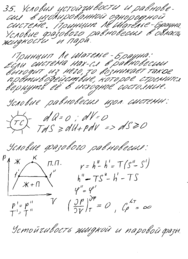 35. Условия устойчивости и равнове-
сия в изолированной однородной
системе. Принцип Ле Шателье-Брауна.
Условие фазового равновесия в области
жидкость - пара.
Принцип Ле Шателье-Брауна:
если система нах-ся в равновесии
выходит из него, то возникает такое
противодействие, которое стремится
вернуть её в исходное состояние.
Условие равновесия изол. системы:
ТС
dQ = 0 ; dV = 0
TdS ≥ dU + pdV => dS ≥ 0
Условие фазового равновесия:
P
Ж
К
П.П.
Ж+П
V
r = h" - h' = T(S" - S')
h" - TS" = h' - TS'
φ" = φ'
P' = P"
T' = T"
(∂P/∂V)T = 0 ,
Устойчивость жидкой и паровой фаз